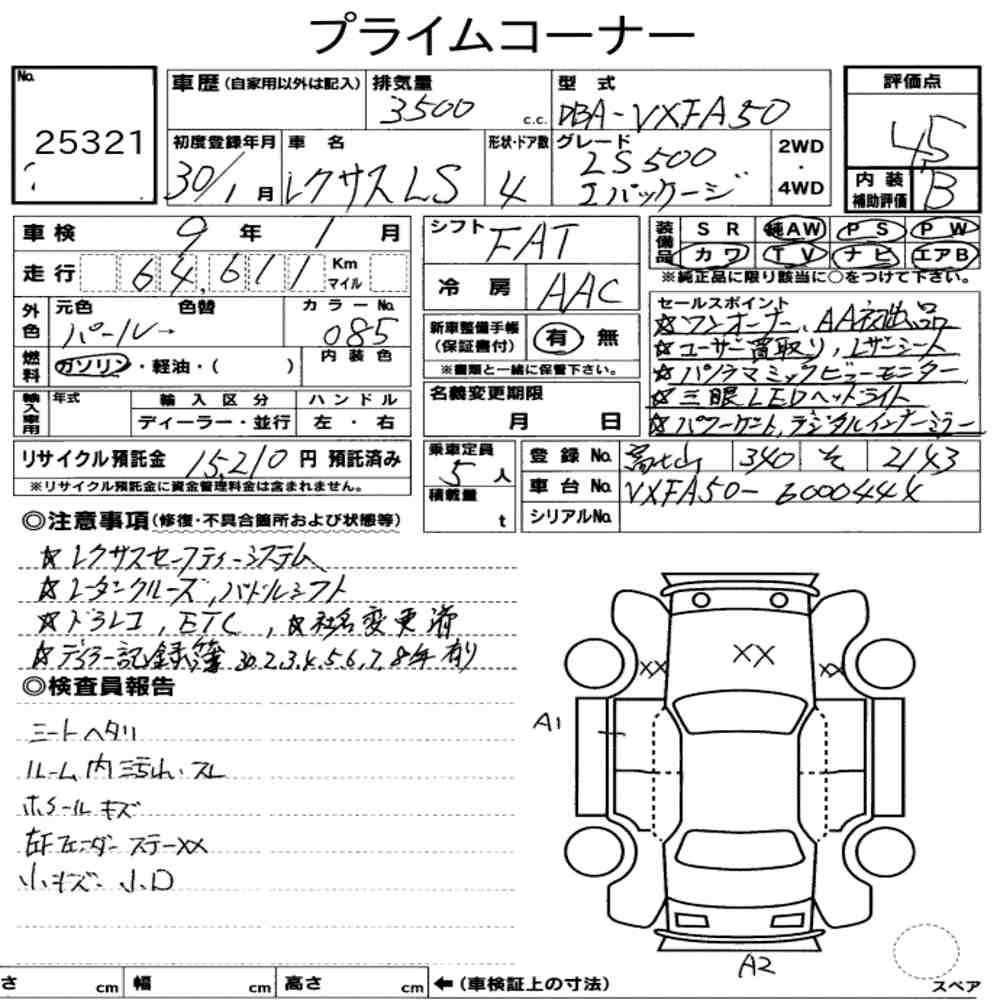 プライムコーナー
No.
25321
車歴 (自家用以外は記入)
排気量
3500 c.c.
型 式
DBA-VXFA50
評価点
4.5
初度登録年月
30/1 月
車 名
レクサスLS
形状・ドア数
4
グレード
LS500
Iパッケージ
2WD
・
4WD
内装
補助評価
B
車検 9 年 1 月
走行 64,611 Km
マイル
外色
元色
パール
色替
カラーNo.
085
内装色
燃料
ガソリン・軽油・( )
輸入車用
年式
輸入区分
ハンドル
ディーラー・並行
左・右
リサイクル預託金 15210 円 預託済み
※リサイクル預託金に資金管理料金は含まれません。
シフト FAT
冷 房 AAC
新車整備手帳
(保証書付)
有 無
※書類と一緒に保管下さい。
名義変更期限
月 日
乗車定員
5 人
積載量
t
装備品
SR 純AW PS PW
カワ TV ナビ エアB
※純正品に限り該当に○をつけて下さい。
セールスポイント
☆ワンオーナー、AA初出品
☆ユーザー買取り、レザーシート
☆パノラマミックビューモニター
☆三眼LEDヘッドライト
☆パワートランク、デジタルインナーミラー
登録No. 340 そ 2143
車台No. VXFA50-600044X
シリアルNo.
◎注意事項(修復・不具合箇所および状態等)
☆レクサスセーフティーシステム
☆レーダークルーズ、パドルシフト
☆ドラレコ、ETC、☆社名変更済
☆ディーラー記録簿 30,2,3,4,5,6,7,8年有り
◎検査員報告
シートヘタリ
ルーム内ミ汚れ、スレ
ホイールキズ
左Fフェンダーステー XX
小キズ・小凹
XX
XX
XX
A1
A2
さ cm
幅 cm
高さ cm
←(車検証上の寸法)
スペア